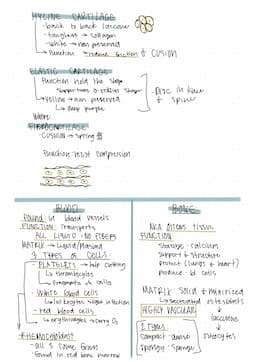 HYLINE CARTILAGE
- back to back lacunae
- toughest → collagen
- White → non preserved
↳ Function → reduce friction & cusion
ELASTIC CARTILAGE
Function hold the shape
Yellow → non preserved
↳ deep purple
- Disc in knee & spine
Where:
FIBROCARTILAGE
- CUSHION → spring
Function: resist compression
BLOOD
Found: in blood vessels
FUNCTION: Transports
ALL LIQUID - NO FIBERS
MATRIX → Liquid/Plasma
3 TYPES OF CELLS:
- PLATELETS → help clotting
↳ thrombocytes
↳ Fragments of cells
- White blood cells
↳ leukocytes fight infection
- red blood cells
↳ erythrocytes → carry O₂
* HEMOCYTOBLAST
found in red bone marrow
BONE
AKA osseus tissue
FUNCTION:
Storage - calcium
Support & structure
Protect (lungs & heart)
Produce - bl. cells
MATRIX: Solid & Mineralized
↳ secreted
HIGHLY VASCULAR
lacunae
↓
osteocytes
2 Types
Compact - dense
Spongey - spongey